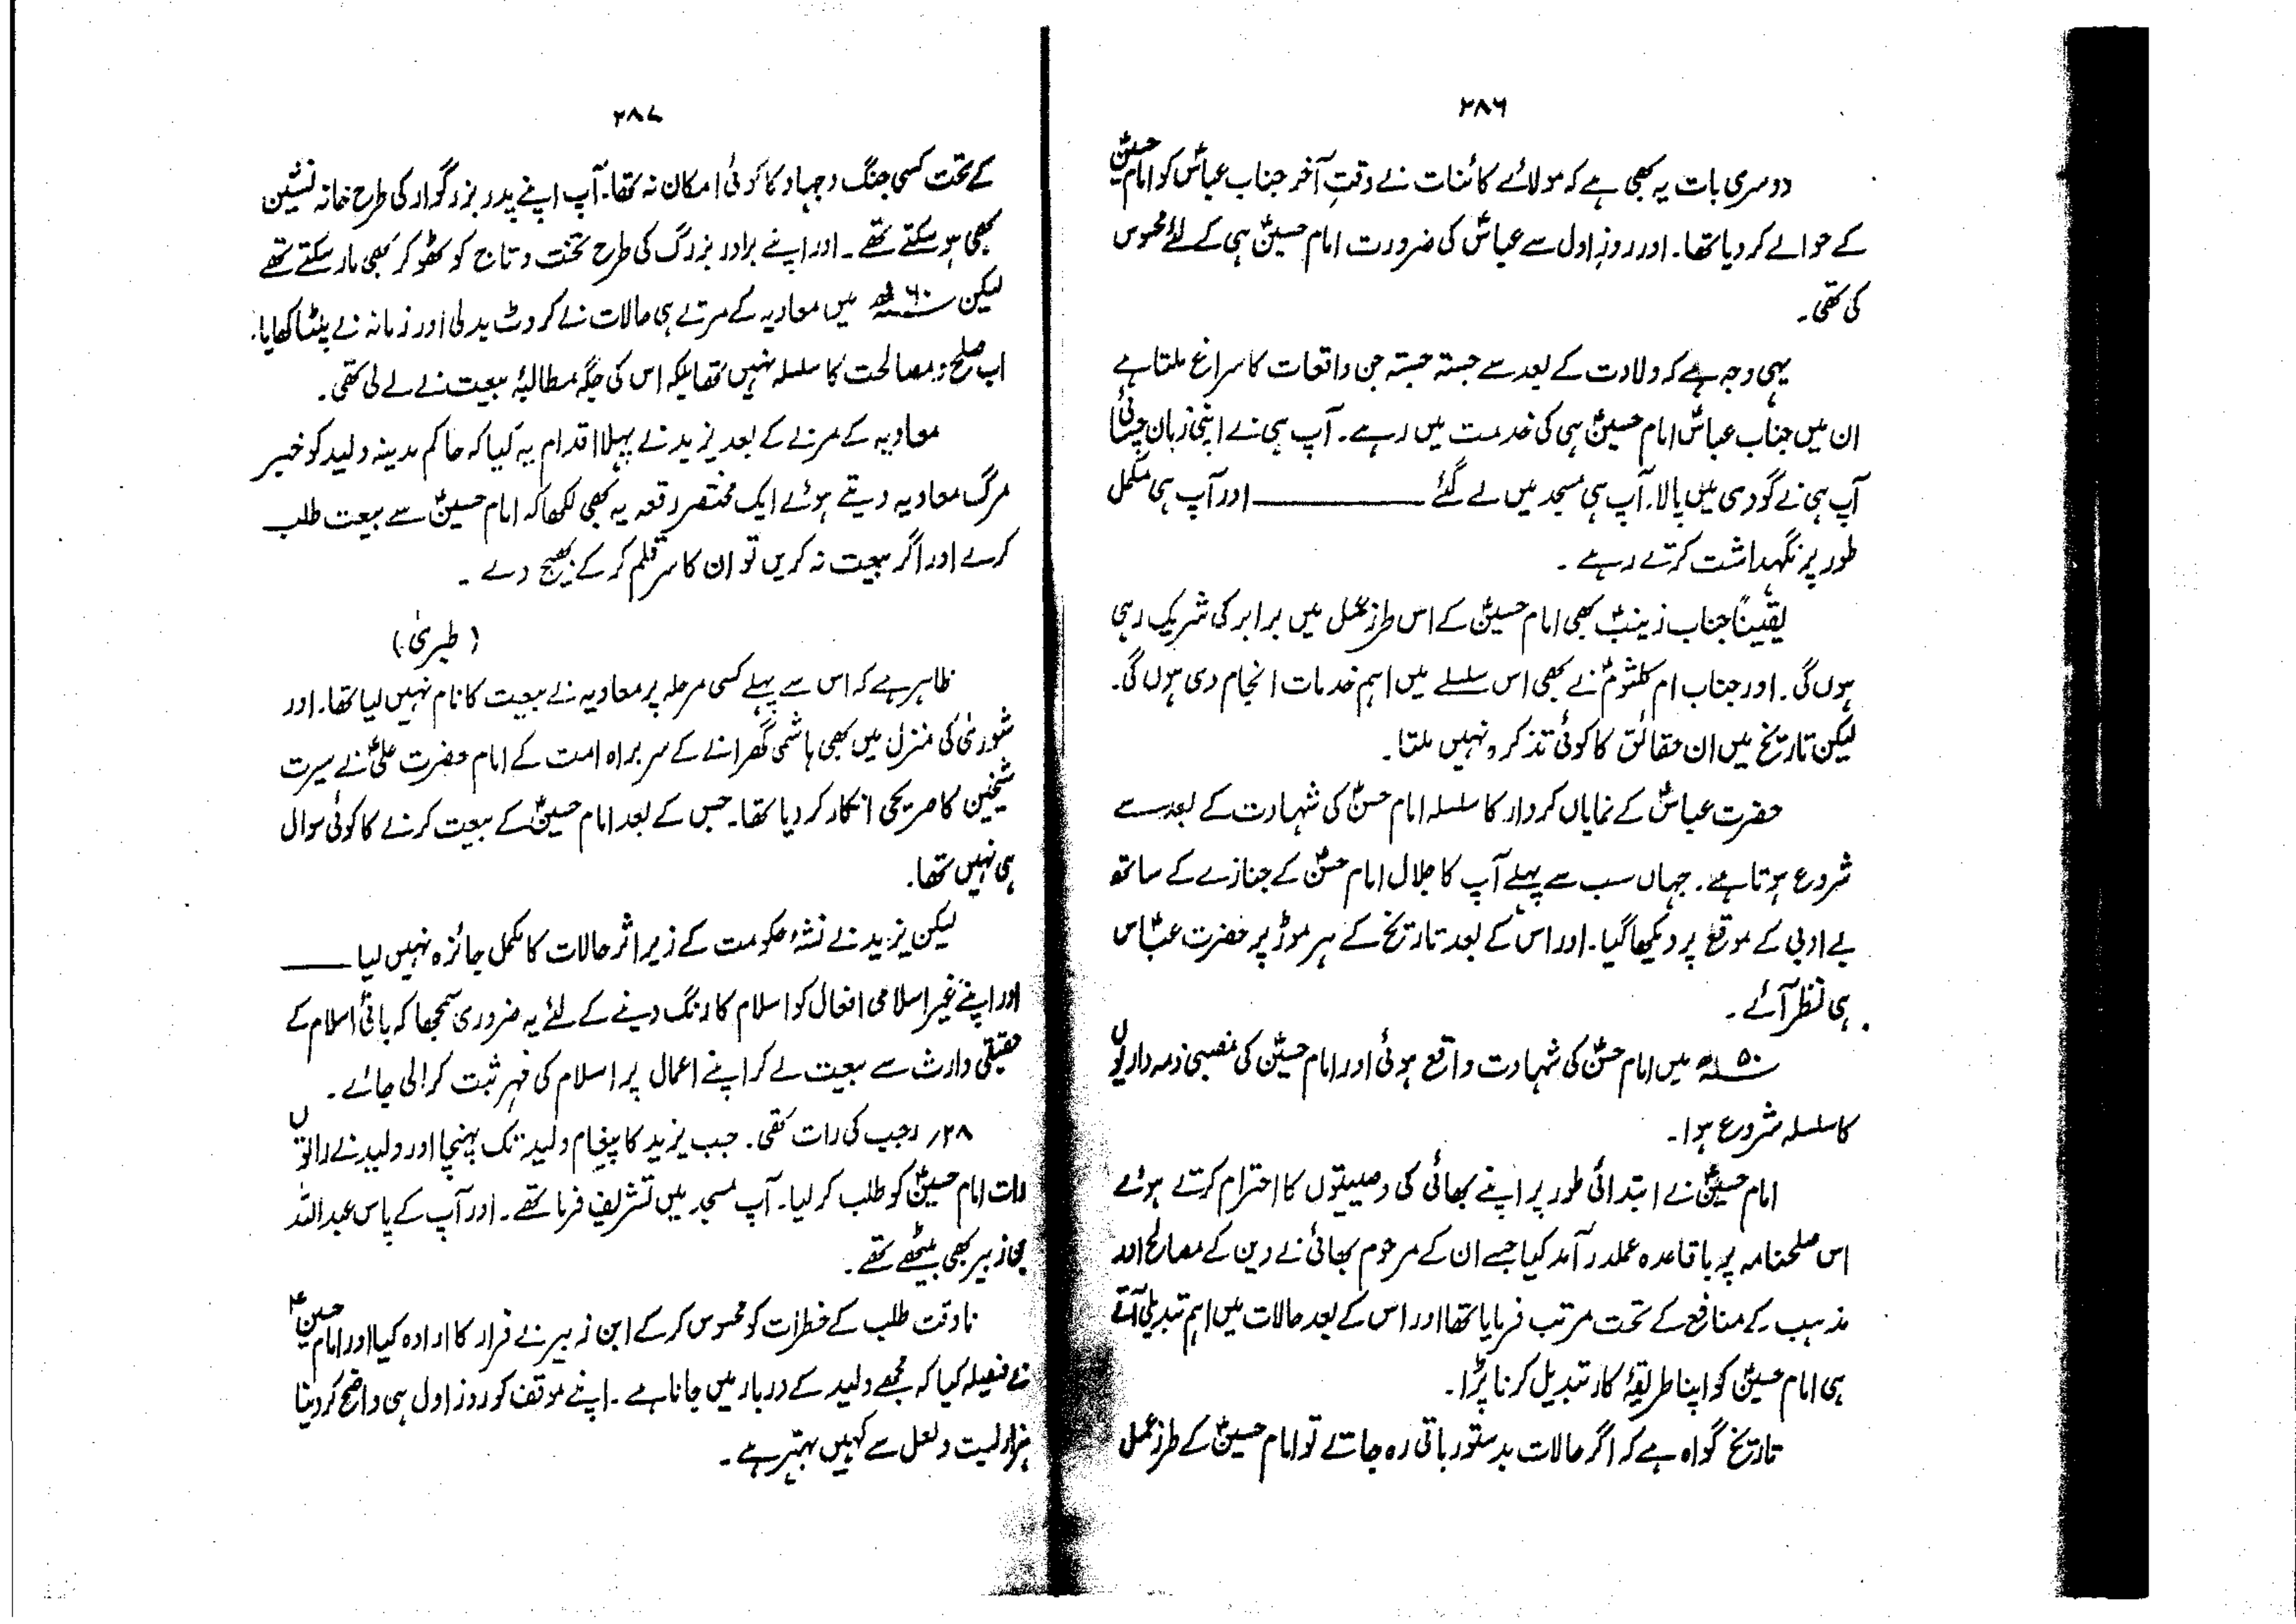 ۲۸۶
دوسری بات یہ بھی ہے کہ مولائے کائنات نے وقتِ آخر جناب عباسؑ کو امام حسینؑ
کے حوالے کر دیا تھا۔ اور روزِ اول سے عباسؑ کی ضرورت امام حسینؑ ہی کے لئے محسوس
کی تھی۔
یہی وجہ ہے کہ ولادت کے بعد سے جستہ جستہ جن واقعات کا سراغ ملتا ہے
ان میں جناب عباسؑ امام حسینؑ ہی کی خدمت میں رہے۔ آپ ہی نے اپنی زبان چسائی
آپ ہی نے گودی میں پالا۔ آپ ہی مسجد میں لے گئے ــــــــ اور آپ ہی مکمل
طور پر نگہداشت کرتے رہے ۔
یقیناً جناب زینبؑ بھی امام حسینؑ کے اس طرزِ عمل میں برابر کی شریک رہی
ہوں گی۔ اور جناب ام کلثومؑ نے بھی اس سلسلے میں اہم خدمات انجام دی ہوں گی۔
لیکن تاریخ میں ان حقائق کا کوئی تذکرہ نہیں ملتا۔
حضرت عباسؑ کے نمایاں کردار کا سلسلہ امام حسنؑ کی شہادت کے بعد سے
شروع ہوتا ہے۔ جہاں سب سے پہلے آپ کا جلال امام حسنؑ کے جنازے کے ساتھ
بے ادبی کے موقع پر دیکھا گیا۔ اور اس کے بعد تاریخ کے ہر موڑ پر حضرت عباسؑ
ہی نظر آئے ۔
۵۰ھ میں امام حسنؑ کی شہادت واقع ہوئی اور امام حسینؑ کی منصبی ذمہ داریوں
کا سلسلہ شروع ہوا۔
امام حسینؑ نے ابتدائی طور پر اپنے بھائی کی وصیتوں کا احترام کرتے ہوئے
اس صلحنامہ پر باقاعدہ عملدرآمد کیا جسے ان کے مرحوم بھائی نے دین کے مصالح اور
مذہب کے منافع کے تحت مرتب فرمایا تھا اور اس کے بعد حالات میں اہم تبدیلی آتے
ہی امام حسینؑ کو اپنا طریقۂ کار تبدیل کرنا پڑا۔
تاریخ گواہ ہے کہ اگر حالات بدستور باقی رہ جاتے تو امام حسینؑ کے طرزِ عمل
۲۸۷
کے تحت کسی جنگ و جہاد کا کوئی امکان نہ تھا۔ آپ اپنے پدر بزرگوار کی طرح خانہ نشین
بھی ہو سکتے تھے ۔ اور اپنے برادر بزرگ کی طرح تخت و تاج کو ٹھوکر بھی مار سکتے تھے
لیکن ۶۰ھ میں معاویہ کے مرتے ہی حالات نے کروٹ بدلی اور زمانہ نے پلٹا کھایا۔
اب صلح و مصالحت کا سلسلہ نہیں تھا بلکہ اس کی جگہ مطالبۂ بیعت نے لے لی تھی۔
معاویہ کے مرنے کے بعد یزید نے پہلا اقدام یہ کیا کہ حاکم مدینہ ولید کو خبر
مرگ معاویہ دیتے ہوئے ایک مختصر رقعہ یہ بھی لکھا کہ امام حسینؑ سے بیعت طلب
کرے اور اگر بیعت نہ کریں تو ان کا سر قلم کر کے بھیج دے ۔
(طبری)
ظاہر ہے کہ اس سے پہلے کسی مرحلہ پر معاویہ نے بیعت کا نام نہیں لیا تھا۔ اور
شوریٰ کی منزل میں بھی ہاشمی گھرانے کے سربراہ امت کے امام حضرت علیؑ نے سیرت
شیخین کا صریحی انکار کر دیا تھا۔ جس کے بعد امام حسینؑ کے بیعت کرنے کا کوئی سوال
ہی نہیں تھا۔
لیکن یزید نے نشۂ حکومت کے زیر اثر حالات کا مکمل جائزہ نہیں لیا ــــــ
اور اپنے غیر اسلامی افعال کو اسلام کا رنگ دینے کے لئے یہ ضروری سمجھا کہ بانیٔ اسلام کے
حقیقی وارث سے بیعت لے کر اپنے اعمال پر اسلام کی مہر ثبت کرا لی جائے ۔
۲۸؍ رجب کی رات تھی۔ جب یزید کا پیغام ولید تک پہنچا اور ولید نے راتوں
رات امام حسینؑ کو طلب کر لیا۔ آپ مسجد میں تشریف فرما تھے۔ اور آپ کے پاس عبداللہ
بن زبیر بھی بیٹھے تھے۔
ناوقت طلب کے خطرات کو محسوس کر کے ابن زبیر نے فرار کا ارادہ کیا اور امام حسینؑ
نے فیصلہ کیا کہ مجھے ولید کے دربار میں جانا ہے ۔ اپنے موقف کو روز اول ہی واضح کر دینا
ہزار لیت و لعل سے کہیں بہتر ہے ۔